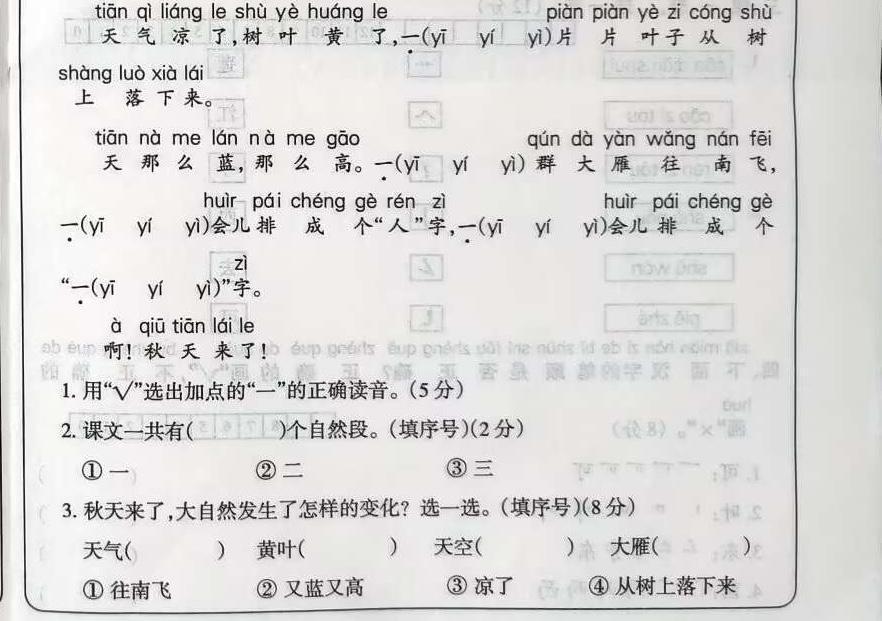 tiān qì liáng le shù yè huáng le piàn piàn yè zi cóng shù
天 气 凉 了,树 叶 黄 了,一(yī yí yì)片 片 叶子 从 树
shàng luò xià lái
上 落 下 来。
tiān nà me lán nà me gāo qún dà yàn wǎng nán fēi
天 那 么 蓝,那 么 高。一(yī yí yì) 群 大 雁 往 南 飞,
huìr pái chéng gè rén zì huìr pái chéng gè
一(yī yí yì)会儿 排 成 个“人”字,一(yī yí yì)会儿 排 成 个
zì
“一(yī yí yì)”字。
à qiū tiān lái le
啊!秋 天 来 了!
1. 用“√”选出加点的“一”的正确读音。(5 分)
2. 课文一共有( )个自然段。(填序号)(2 分)
① 一 ② 二 ③ 三
3. 秋天来了,大自然发生了怎样的变化? 选一选。(填序号)(8 分)
天气( ) 黄叶( ) 天空( ) 大雁( )
① 往南飞 ② 又蓝又高 ③ 凉了 ④ 从树上落下来